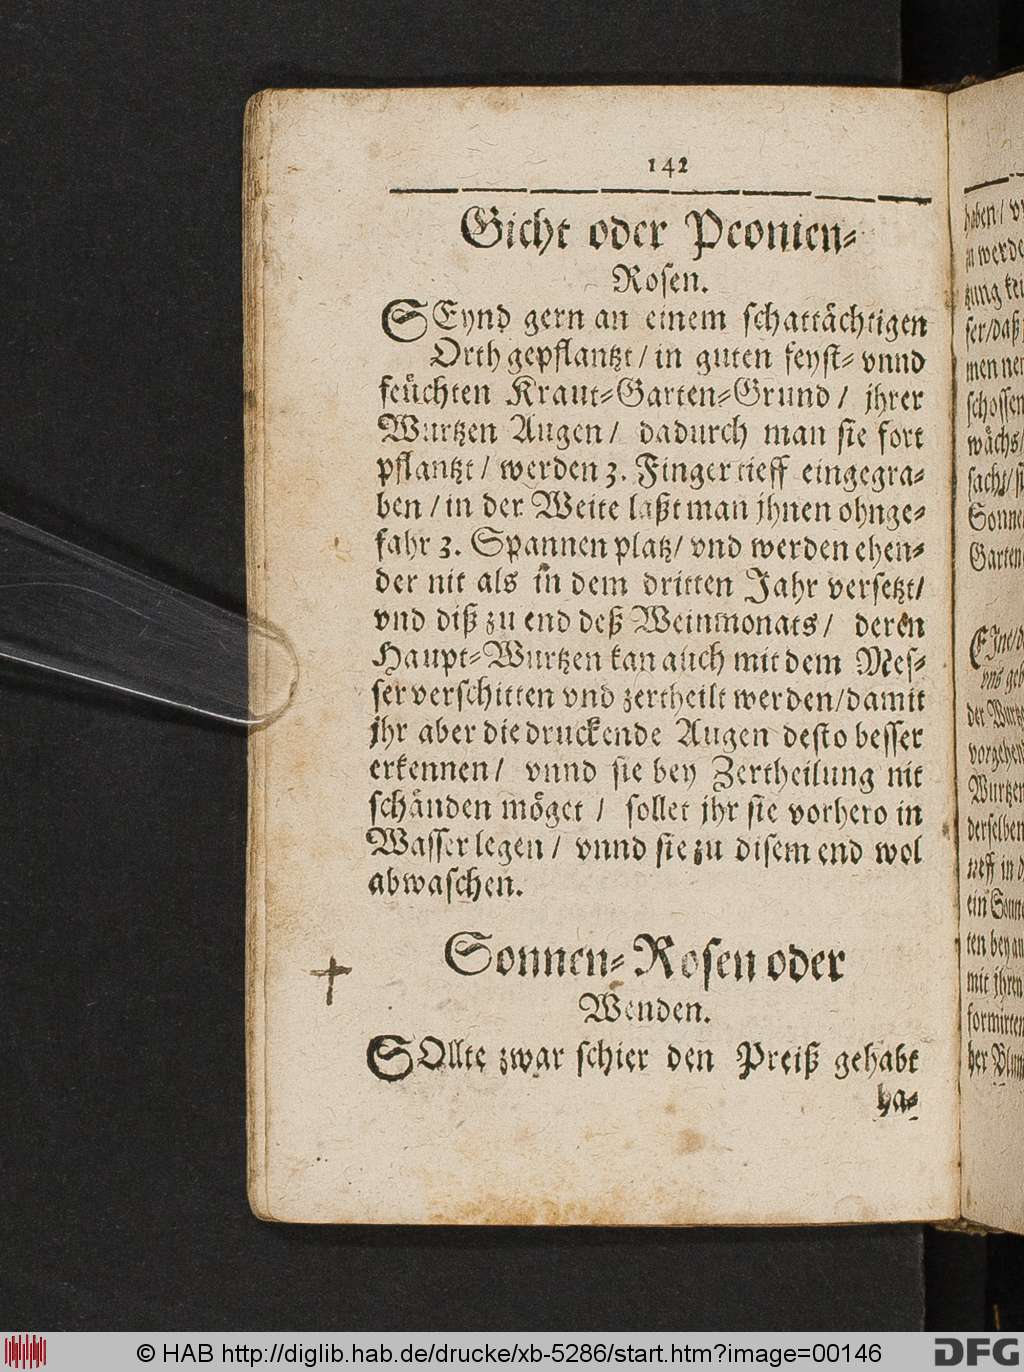 142
Gicht oder Peonien-
Rosen.
SEynd gern an einem schattächtigen
Orth gepflantzt / in guten feyst- vnnd
feüchten Kraut-Garten-Grund / jhrer
Wurtzen Augen / dadurch man sie fort
pflantzt / werden 3. Finger tieff eingegra-
ben / in der Weite laßt man jhnen ohnge-
fahr 3. Spannen platz / vnd werden ehen-
der nit als in dem dritten Jahr versetzt /
vnd diß zu end deß Weinmonats / deren
Haupt-Wurtzen kan auch mit dem Mes-
ser verschitten vnd zertheilt werden / damit
jhr aber die druckende Augen desto besser
erkennen / vnnd sie bey Zertheilung nit
schänden möget / sollet jhr sie vorhero in
Wasser legen / vnnd sie zu disem end wol
abwaschen.
Sonnen-Rosen oder
Wenden.
SOllte zwar schier den Preiß gehabt
ha-
haben /
werde
ser / daß
schossen
wächs /
Garten
der Wurtz
vorgehen
Wurtzen
derselben
tieff in d
ten bey
mit jhren
formirten
© HAB http://diglib.hab.de/drucke/xb-5286/start.htm?image=00146
DFG